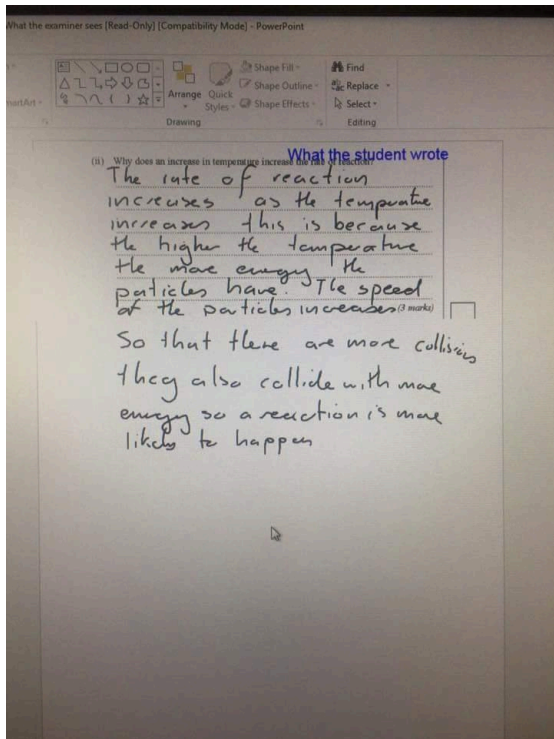 What the examiner sees [Read-Only] [Compatibility Mode] - PowerPoint
Shape Fill
Find
Shape Outline
Replace
martArt
Arrange
Quick
Styles
Shape Effects
Select
Drawing
Editing
(ii) Why does an increase in temperature increase the rate of reaction?
What the student wrote
The rate of reaction
increases as the temperature
increases this is because
the higher the temperature
the more energy the
particles have. The speed
of the particles increases (3 marks)
So that there are more collisions
they also collide with more
energy so a reaction is more
likely to happen